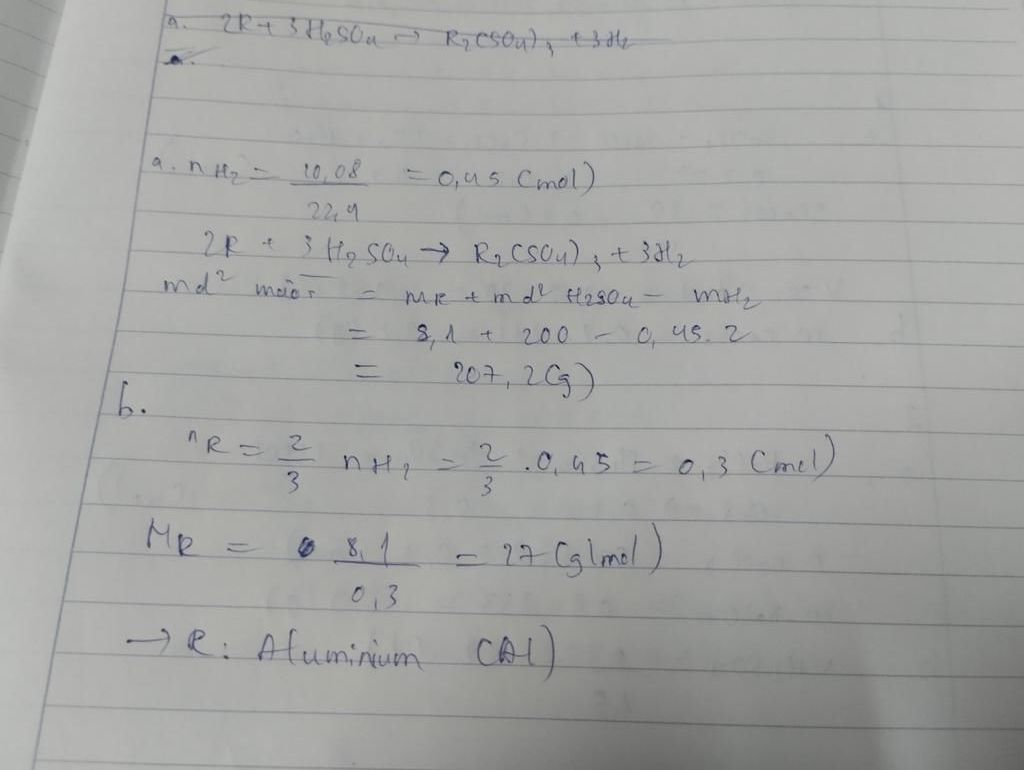 a. 2R + 3H₂SO₄ → R₂(SO₄)₃ + 3H₂
a. nH₂ = 10,08 / 22,4 = 0,45 (mol)
2R + 3H₂SO₄ → R₂(SO₄)₃ + 3H₂
md² = mR + md² H₂SO₄ - mH₂
= 8,1 + 200 - 0,45.2
= 207,2 (g)
b.
nR = 2/3 nH₂ = 2/3 .0,45 = 0,3 (mol)
MR = 8,1 / 0,3 = 27 (g/mol)
→ R: Aluminium (Al)